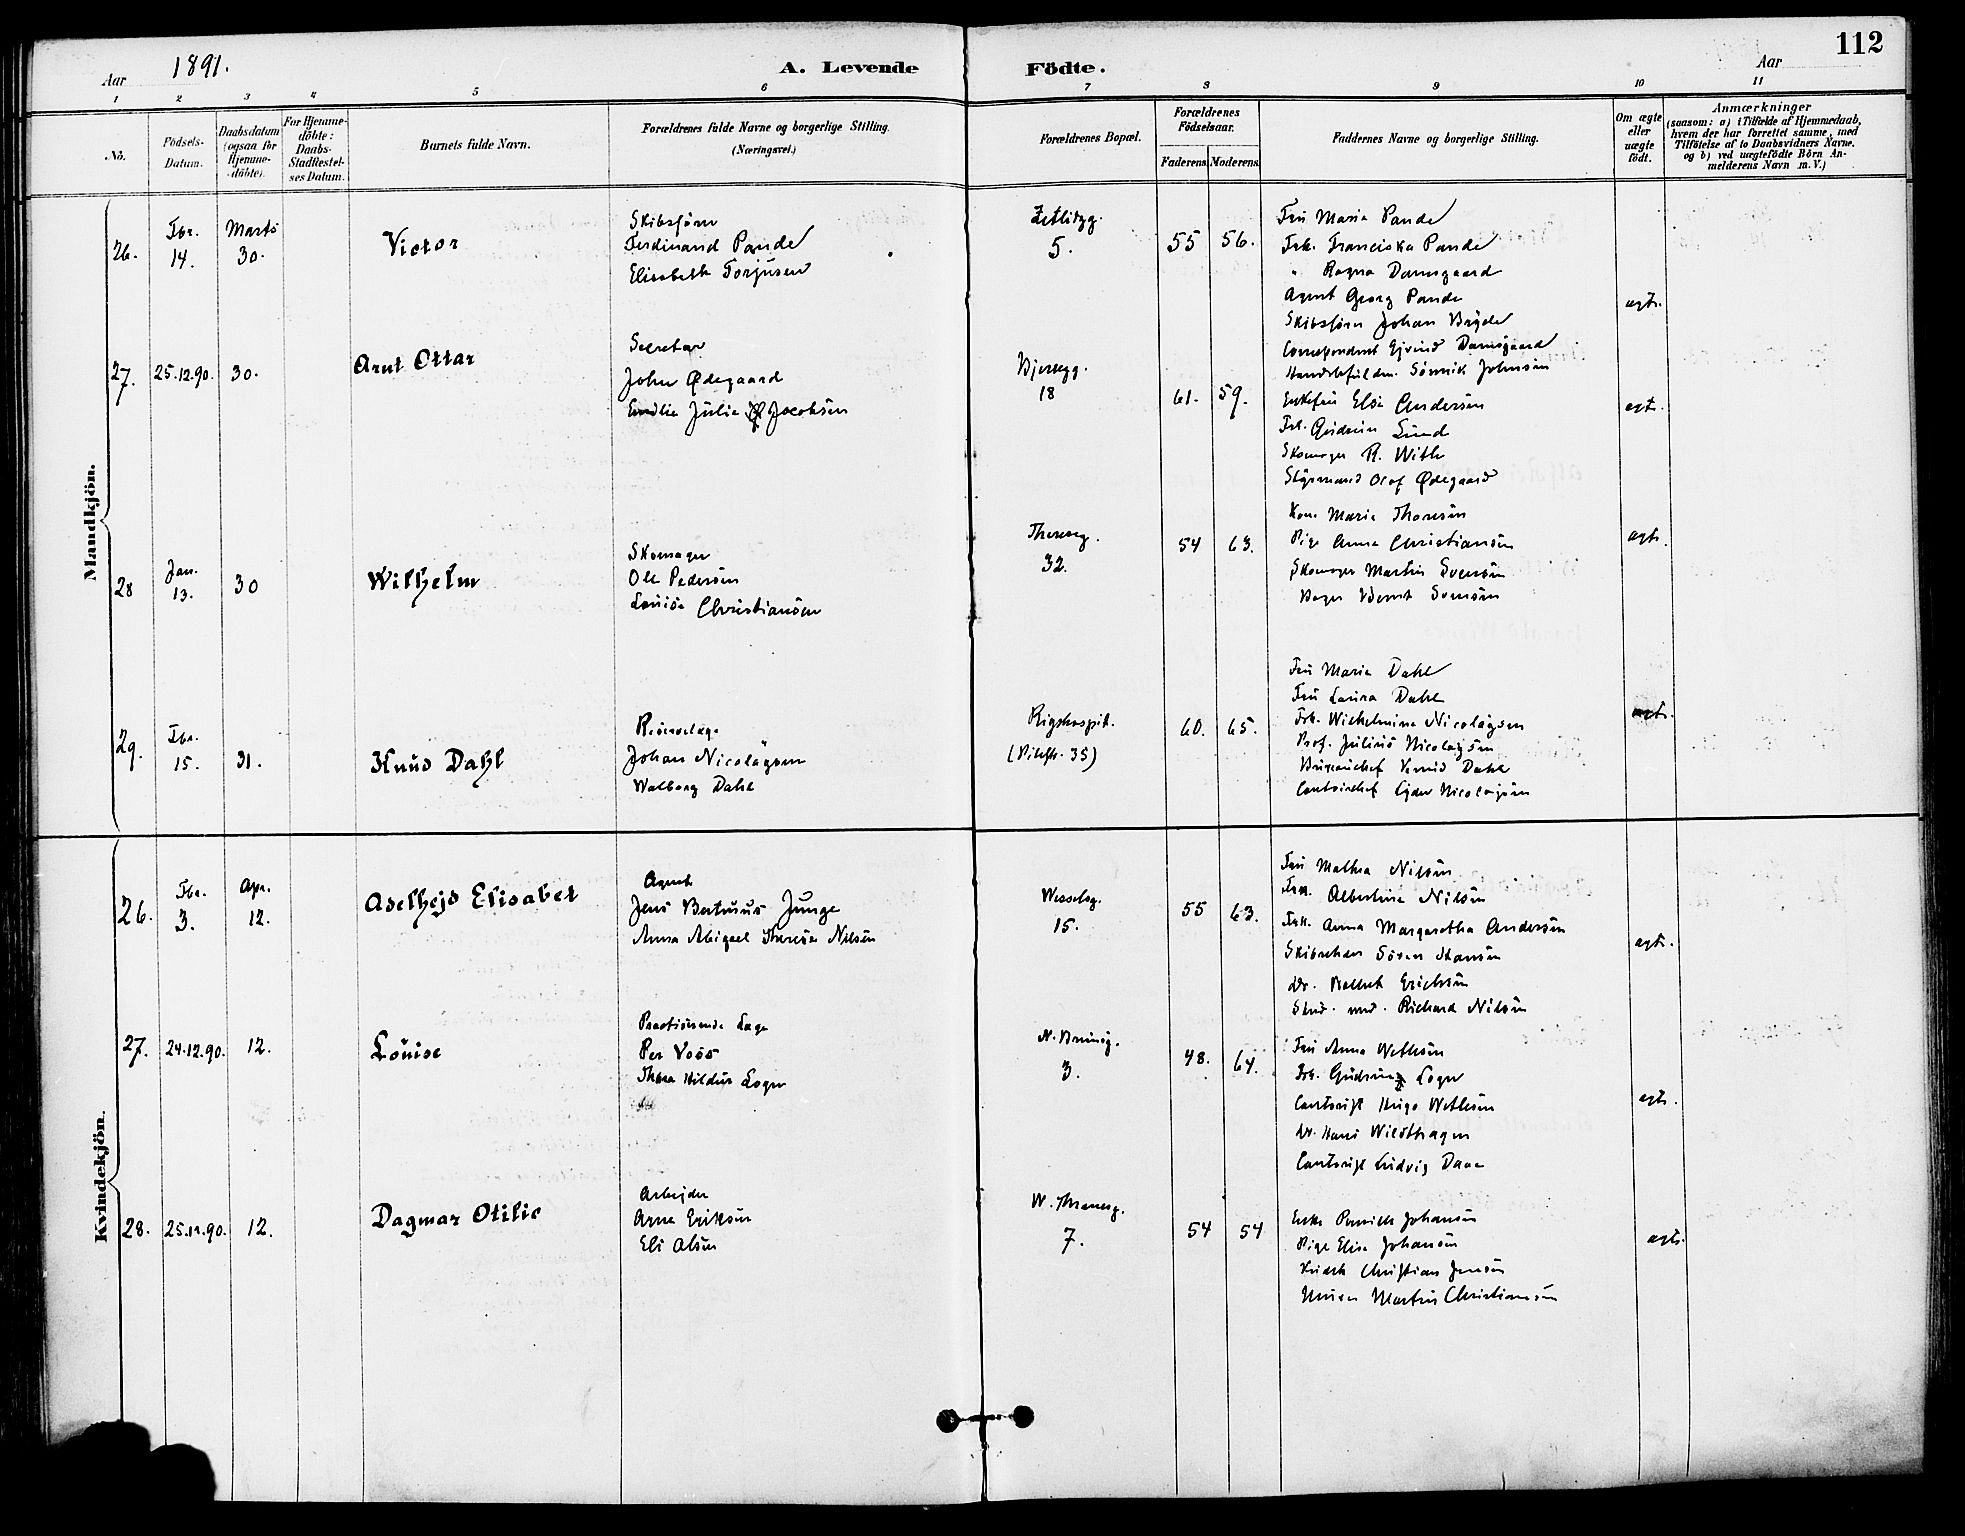 112
Aar 1891.
A. Levende Födte.
Aar
1 2 3 4 5 6 7 8 9 10 11
No.
Födsels-Datum.
Daabsdatum (ogsaa for Hjemme-döbte).
For Hjemme-döbte: Daabs-Stadfæstelses Datum.
Barnets fulde Navn.
Forældrenes fulde Navne og borgerlige Stilling. (Næringsvei.)
Forældrenes Bopæl.
Forældrenes Födselsaar.
Faderens. Moderens.
Faddernes Navne og borgerlige Stilling.
Om ægte eller uægte födt.
Anmærkninger
(saasom: a) i Tilfælde af Hjemmedaab,
hvem der har forrettet samme, med
Tilföielse af to Daabsvidners Navne.
og b) ved uægtefödte Börn An-
melderens Navn m. V.)
Mandkjön.
26. Fbr. 14. Marts 30. Victor
Skibsförer
Ferdinand Pande
Elisabeth Torjusen
5. 55 56.
Fru Maria Pande
Frk. Franciska Pande
" Ragna Damsgaard
Agent Georg Pande
Skibsförer Johan Bryde
Correspondent Ejvind Damsgaard
ægte.
27. 25.12.90. 30. Arnt Ottar
Secretær
John Ødegaard
Emilie Julie Jacobsen
Bjerregg.
18 61. 59.
Handelsfuldm. Sönnik Johnsen
Enkefru Else Andersen
Frk. Gudrun Lund
Skomager R. With
Styrmand Olaf Ødegaard
ægte.
28 Jan. 13. 30 Wilhelm
Skomager
Ole Pedersen
Louise Christiansen
Thereseg.
32. 54 63.
Kone Marie Thoresen
Pige Anna Christiansen
Skomager Martin Svensen
Bager Bernt Svensen
ægte.
29. Fbr. 15. 31. Knud Dahl
Reservelæge
Johan Nicolaysen
Walborg Dahl
Rigshospit.
(Pilestr. 35) 60. 65.
Fru Maria Dahl
Fru Laura Dahl
Frk. Wilhelmine Nicolaysen
Prof. Julius Nicolaysen
Bureauchef Knud Dahl
Contoirchef Nicolaysen
ægte.
Kvindekjön.
26. Fbr. 3. Apr. 12. Adelheid Elisabet
Agent
Jens Junge
Anna Abigael Therese Nilsen
Wesselsg.
15. 55 63.
Fru Mathea Nilsen
Frk. Albertine Nilsen
Frk. Anna Margaretha Andersen
Sören Hansen
Dr. Erichsen
Stud. med. Richard Nilsen
ægte.
27. 24.12.90. 12. Louise
Practiserende Læge
Per Voss
Thora Hildur Loger
3. 48. 64.
Fru Anna Wethsen
Frk. Gudrun Loger
Contorist Hugo Wethsen
Dr. Hans Wildthagen
Contorist Ludvig Daae
ægte.
28. 25.12.90. 12. Dagmar Otilie
Arbejder
Arne Eriksen
Eli Olsen
7. 54 54
Enke Pernille Johansen
Pige Elise Johansen
Kudsk Christian Jensen
Murer Martin Christiansen
ægte.